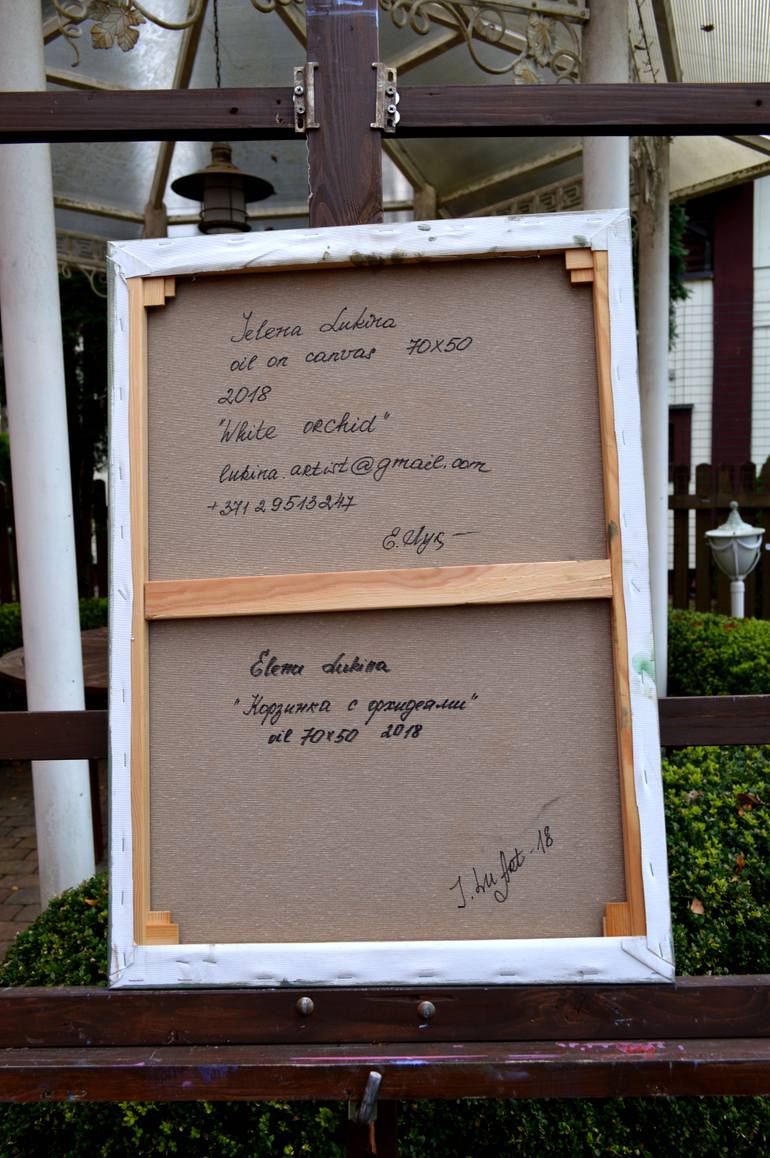 Jelena Lukina
oil on canvas 70x50
2018
"White orchid"
lukina.artist@gmail.com
+371 29513247
Elena Lukina
"Корзинка с орхидеями"
oil 70x50 2018
J. Lu Art - 18